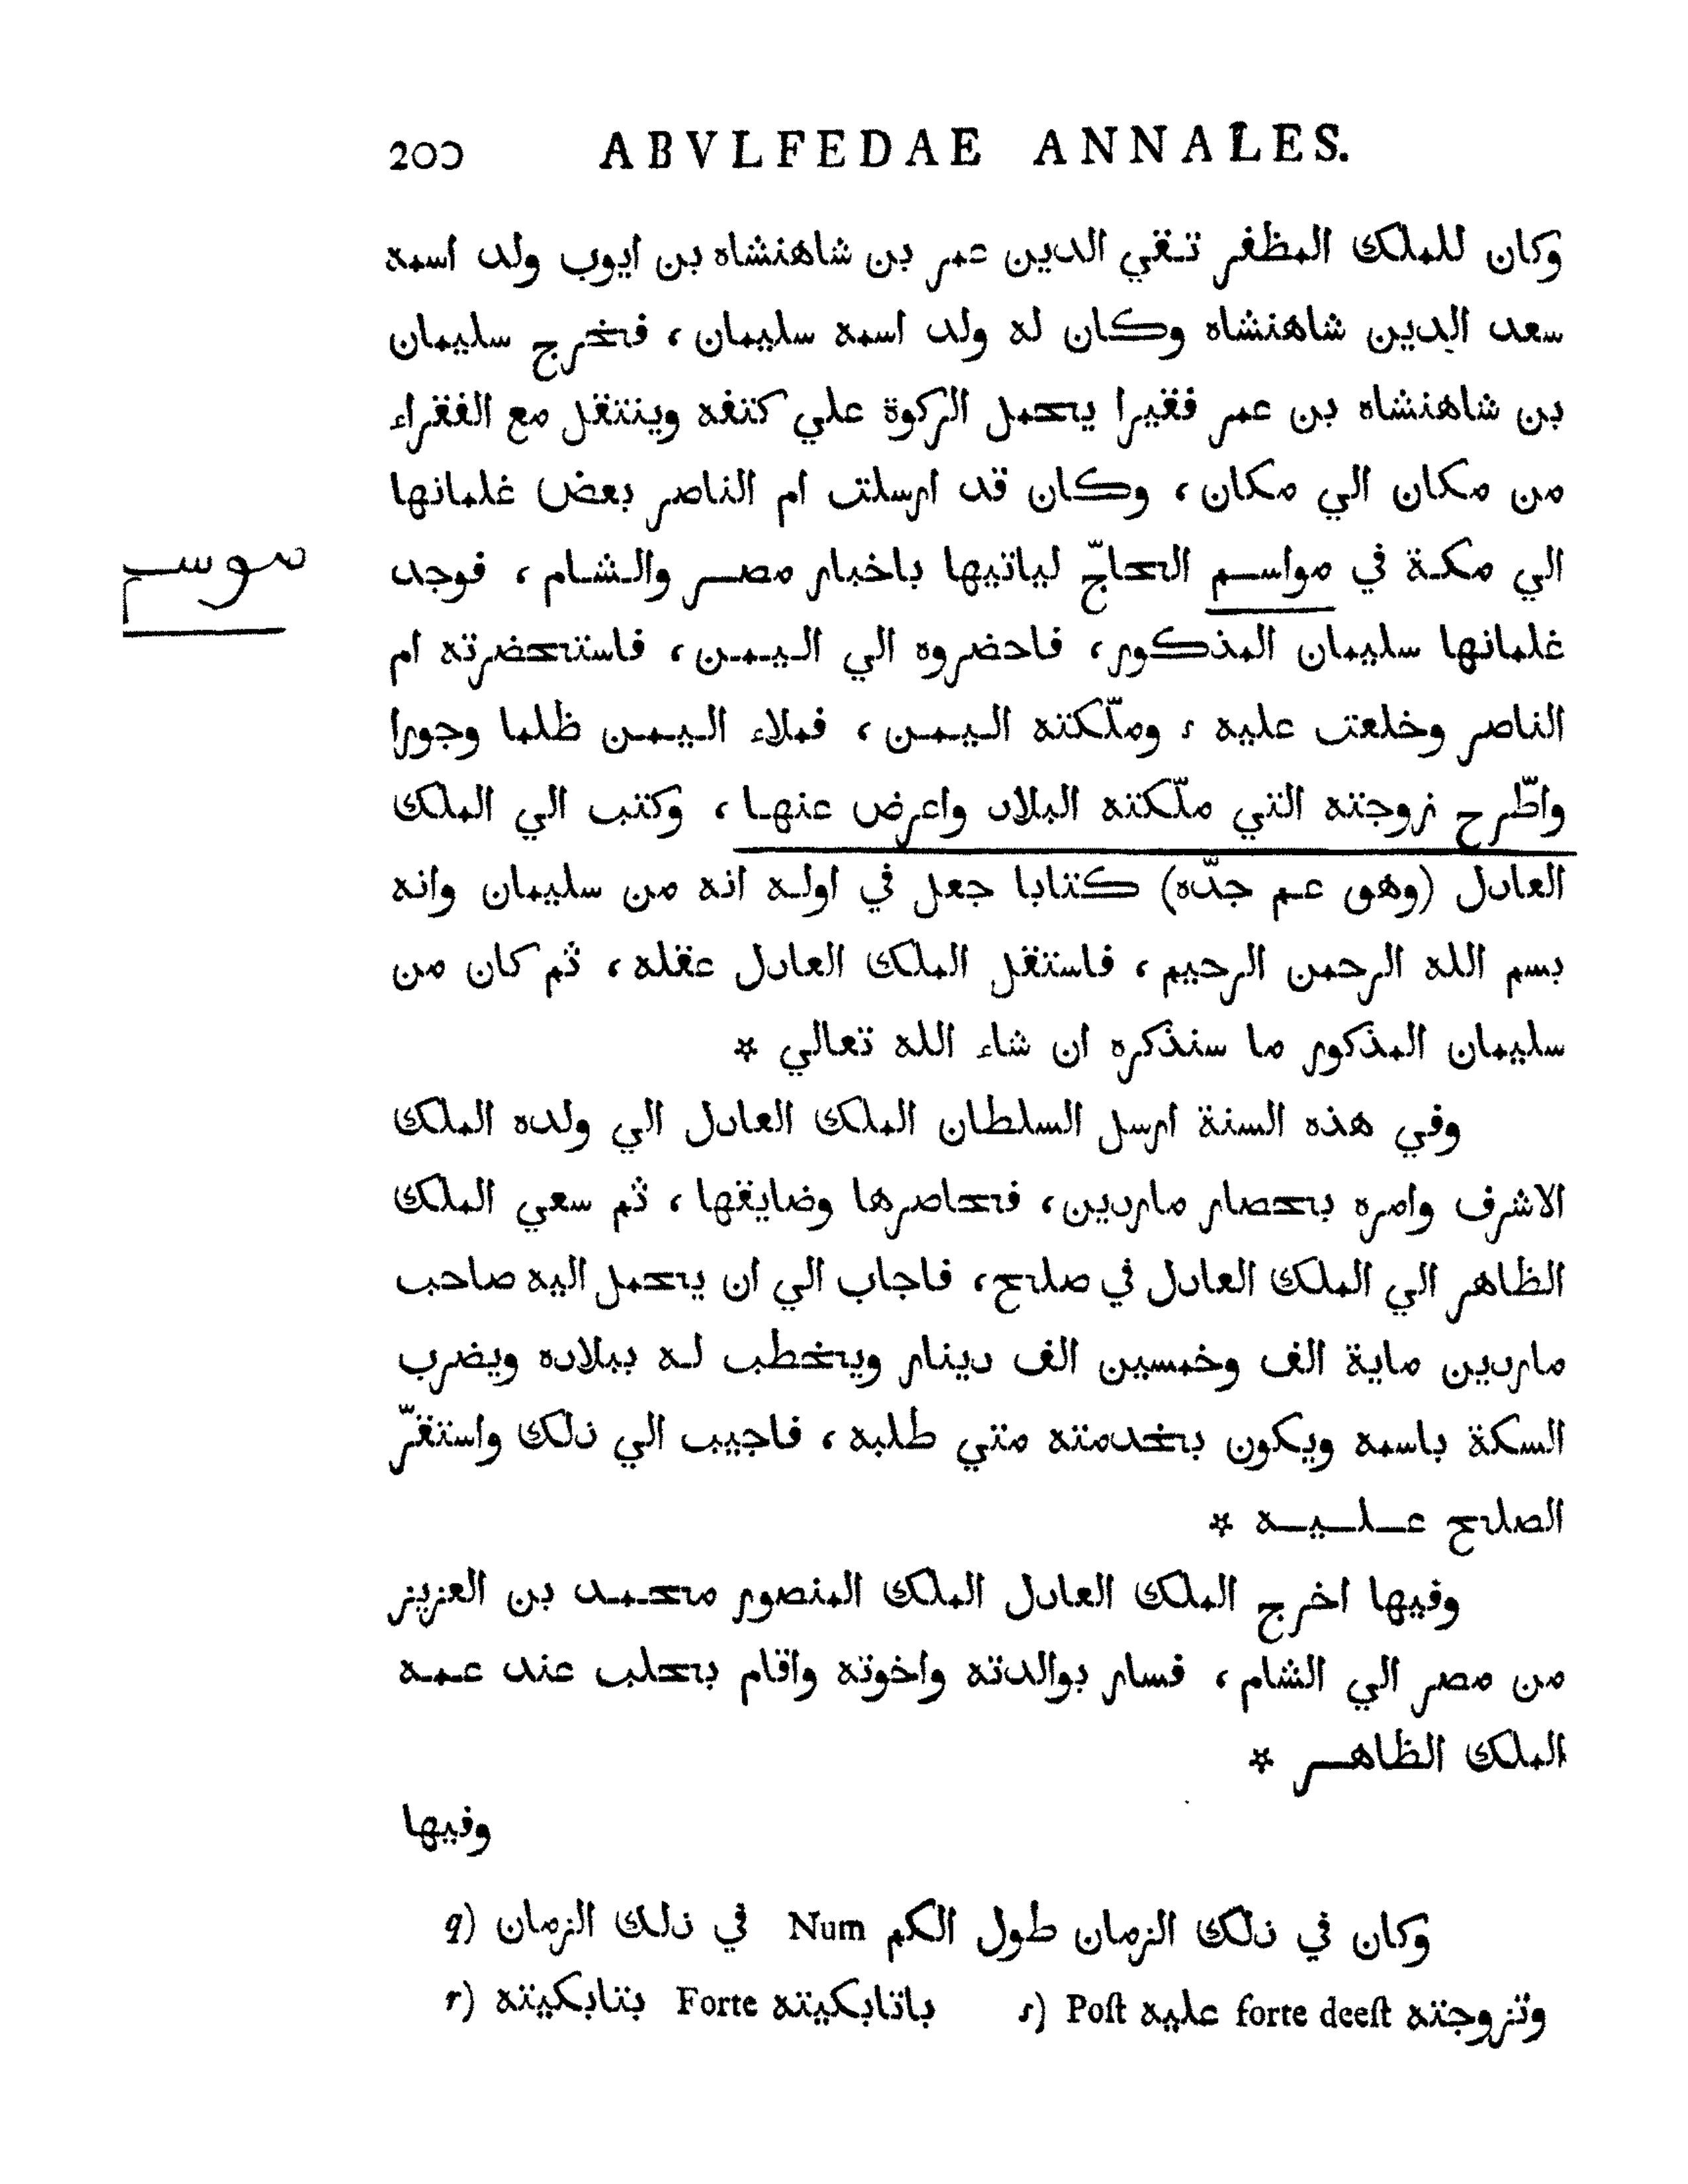 200 ABVLFEDAE ANNALES.
وكان للملك المظفر تقي الدين عمر بن شاهنشاه بن ايوب ولد اسمه
سعد الدين شاهنشاه وكان له ولد اسمه سليمان ، فخرج سليمان
بن شاهنشاه بن عمر فقيرا يحمل الركوة علي كتفه وينتقل مع الفقراء
من مكان الي مكان ، وكان قد ارسلت ام الناصر بعض غلمانها
الي مكة في مواسم الحاجّ لياتيها باخبار مصر والشام ، فوجد
موسم
غلمانها سليمان المذكور ، فاحضروه الي اليمن ، فاستحضرته ام
الناصر وخلعت عليه s وملّكته اليمن ، فملاء اليمن ظلما وجورا
واطّرح زوجته التي ملّكته البلاد واعرض عنها ، وكتب الي الملك
العادل (وهو عم جدّه) كتابا جعل في اوله انه من سليمان وانه
بسم الله الرحمن الرحيم ، فاستقل الملك العادل عقله ، ثم كان من
سليمان المذكور ما سنذكره ان شاء الله تعالي *
وفي هذه السنة ارسل السلطان الملك العادل الي ولده الملك
الاشرف وامره بحصار ماردين ، فحاصرها وضايقها ، ثم سعي الملك
الظاهر الي الملك العادل في صلح ، فاجاب الي ان يحمل اليه صاحب
ماردين ماية الف وخمسين الف دينار ويخطب له ببلاده ويضرب
السكة باسمه ويكون بخدمته متي طلبه ، فاجيب الي ذلك واستقرّ
الصلح عليه *
وفيها اخرج الملك العادل الملك المنصور محمد بن العزيز
من مصر الي الشام ، فسار بوالدته واخوته واقام بحلب عند عمه
الملك الظاهر *
وفيها
q) في ذلك الزمان Num وكان في ذلك الزمان طول الكم
r) بتابكيته Forte باتابكيته s) Poſt عليه forte deeſt وتزوجته